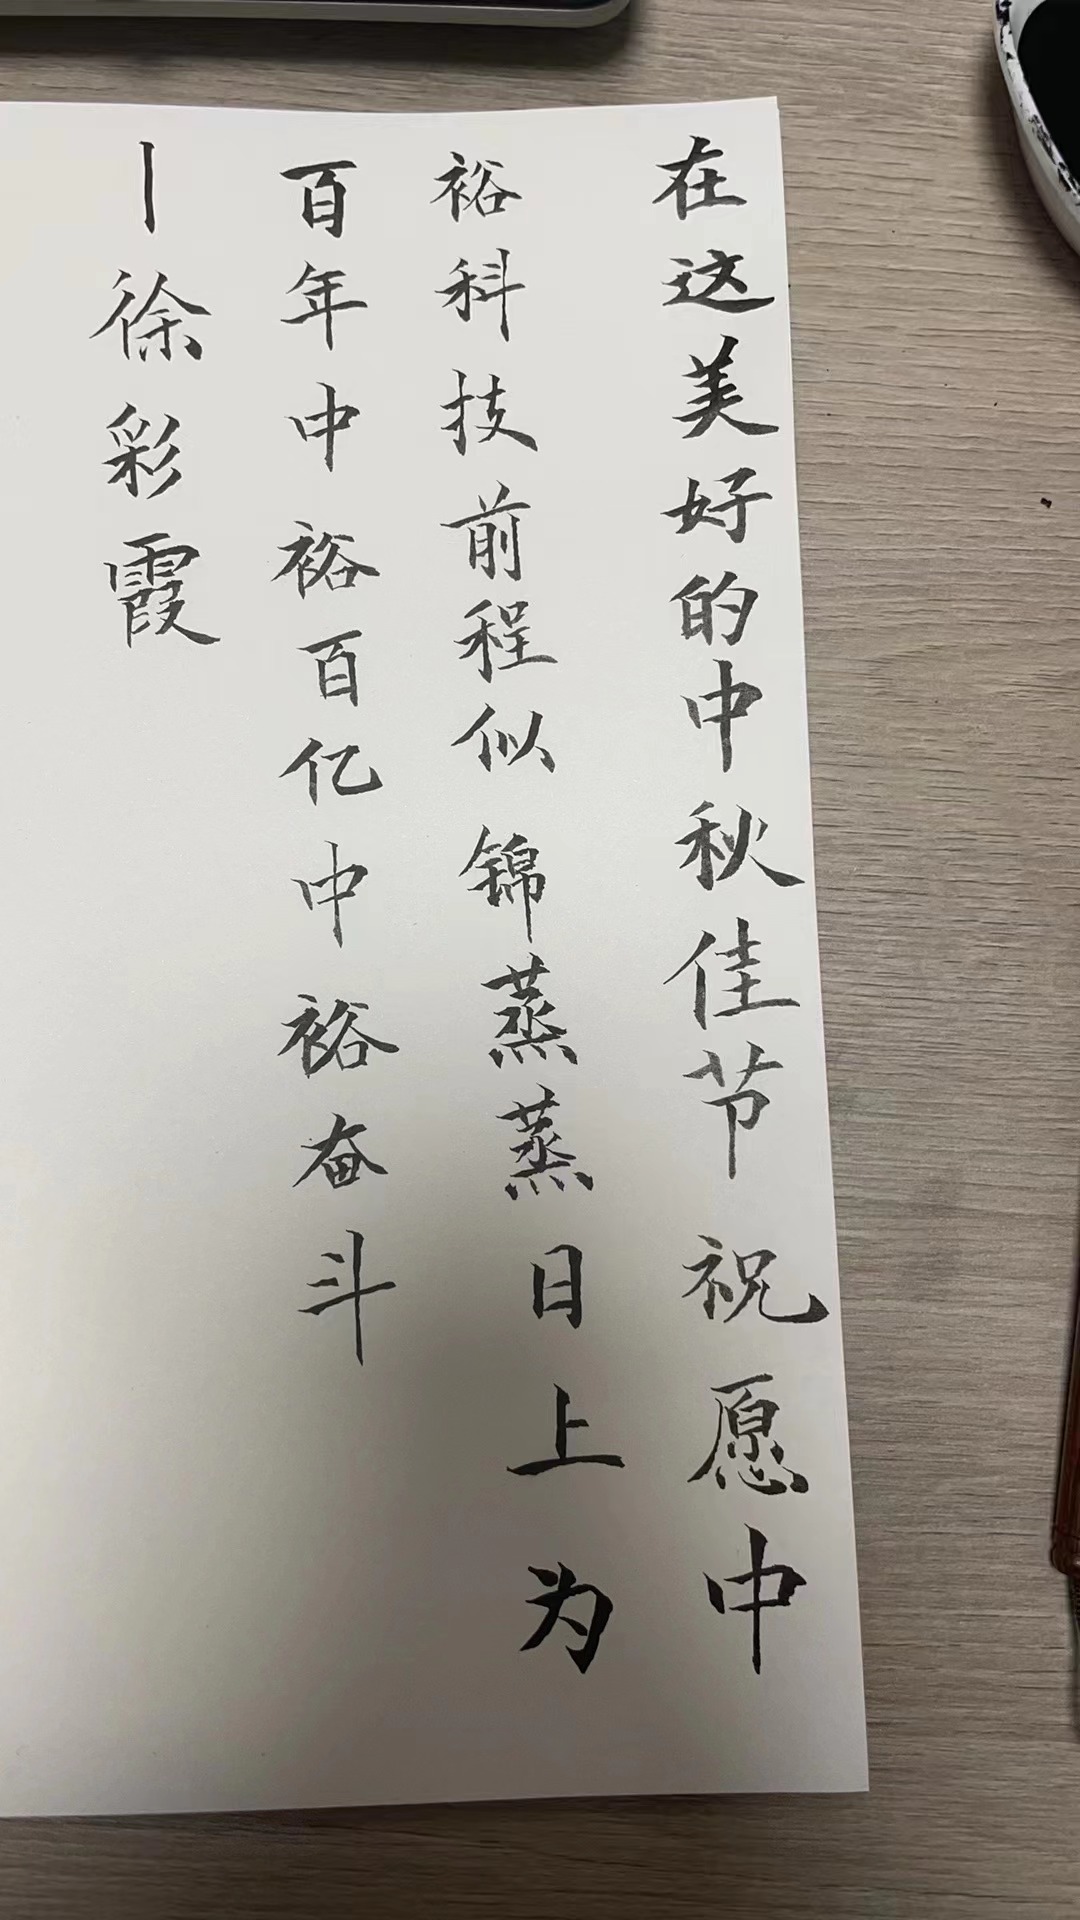 在这美好的中秋佳节祝愿中
裕科技前程似锦蒸蒸日上为
百年中裕百亿中裕奋斗
—徐彩霞